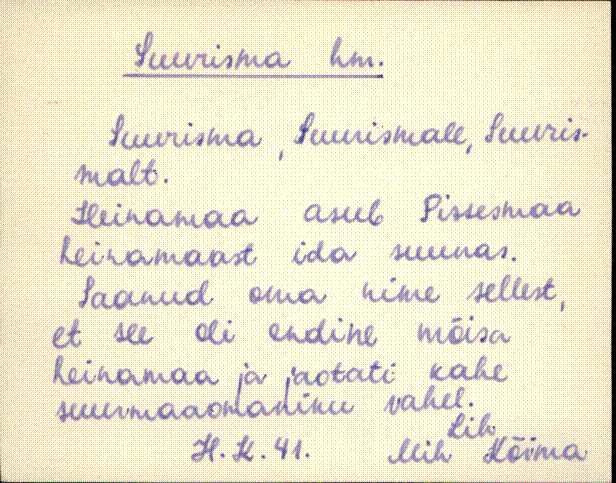 Suurisma hm.
Suurisma, Suurismale, Suuris-
malt.
Heinamaa asub Pissesmaa
heinamaast ida suunas.
Saanud oma nime sellest,
et see oli endine mõisa
heinamaa ja jaotati kahe
suurmaaomaniku vahel.
Lih
H. K. 41. Mih Kõima